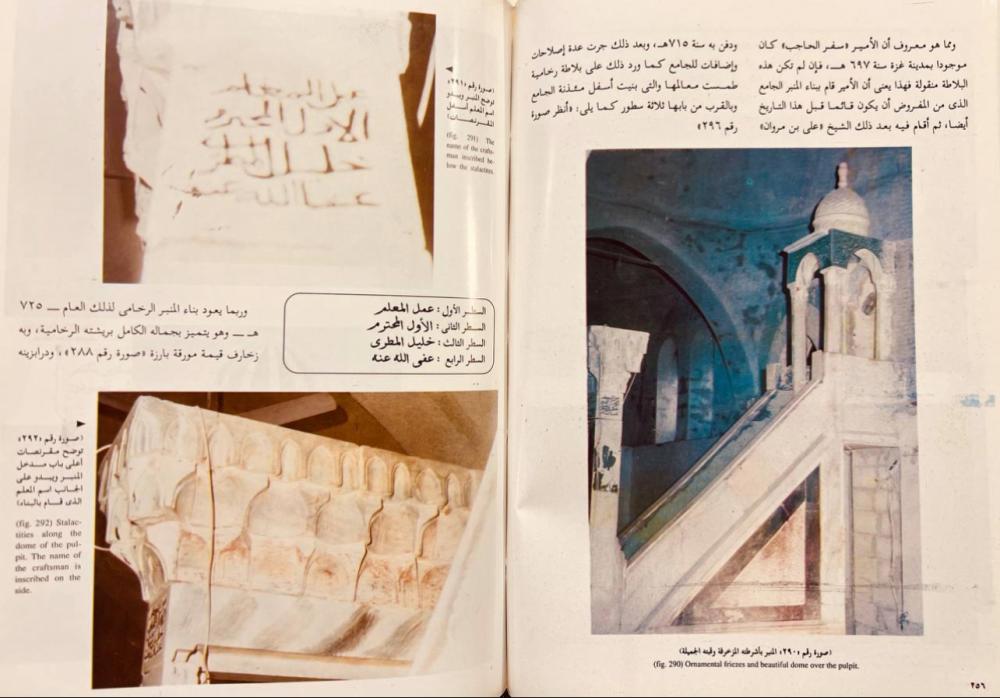 ومما هو معروف أن الأمير «سفر الحاجب» كان
موجودا بمدينة غزة سنة ٦٩٧ هـ، فإن لم تكن هذه
البلاطة منقولة فهذا يعنى أن الأمير قام ببناء المنبر الجامع
الذى من المفروض أن يكون قائما قبل هذا التاريخ
أيضا، ثم أقام فيه بعد ذلك الشيخ «على بن مروان»
ودفن به سنة ٧١٥هـ، وبعد ذلك جرت عدة إصلاحات
وإضافات للجامع كما ورد ذلك على بلاطة رخامية
طمست معالمها والتى بنيت أسفل مئذنة الجامع
وبالقرب من بابها ثلاثة سطور كما يلى: «أنظر صورة
رقم ٢٩٦»
(صورة رقم «٢٩٠» المنبر بأشرطته المزخرفة وقبته الجميلة)
(fig. 290) Ornamental friezes and beautiful dome over the pulpit.
٢٥٦
(صورة رقم «٢٩١»
توضح المنبر ويبدو
اسم المعلم أسفل
المقرنصات)
(fig. 291) The
name of the crafts-
man inscribed be-
low the stalactites.
عمل المعلم
الأول المحترم
خليل
عفى الله عنه
السطر الأول : عمل المعلم
السطر الثانى : الأول المحترم
السطر الثالث : خليل المطرى
السطر الرابع : عفى الله عنه
وربما يعود بناء المنبر الرخامى لذلك العام — ٧٢٥
هـ — وهو يتميز بجماله الكامل بريشته الرخامية، وبه
زخارف قيمة مورقة بارزة «صورة رقم ٢٨٨»، ودرابزينه
(صورة رقم «٢٩٢»
توضح مقرنصات
أعلى باب مدخل
المنبر ويبدو على
الجانب اسم المعلم
الذى قام بالبناء)
(fig. 292) Stalac-
tities along the
dome of the pul-
pit. The name of
the craftsman is
inscribed on the
side.